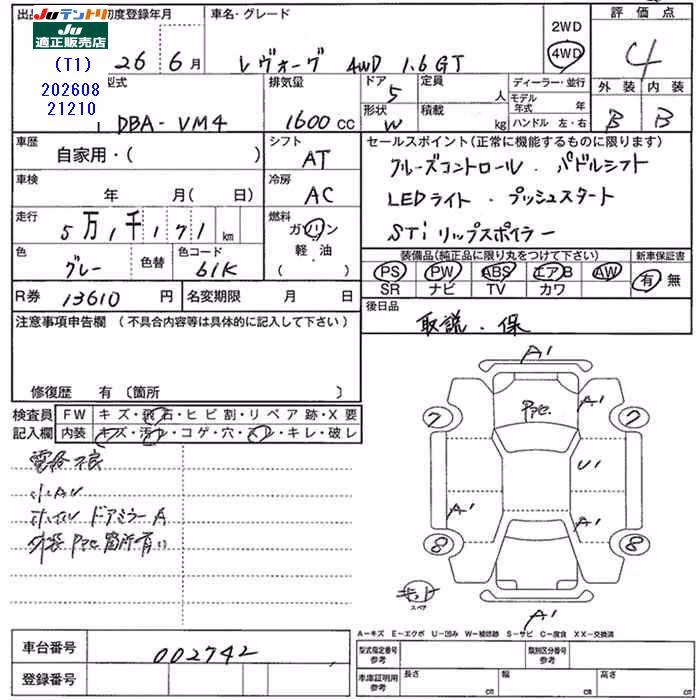 出品
JUテントリ
JU
適正販売店
(T1)
202608
21210
初度登録年月
26年6月
車名・グレード
レヴォーグ 4WD 1.6GT
2WD
4WD
評価点
4
型式
DBA-VM4
排気量
1600 cc
ドア
5
定員
人
形状
W
積載
kg
ディーラー・並行
モデル年式
年
ハンドル 左・右
外装
内装
B
B
車歴
自家用・( )
シフト
AT
車検
年 月( 日)
冷房
AC
走行
5万1千171 km
燃料
ガソリン
軽・油
色
グレー
色替
色コード
61K
R券
13610 円
名変期限 月 日
セールスポイント(正常に機能するものに限ります)
クルーズコントロール・パドルシフト
LEDライト・プッシュスタート
STiリップスポイラー
装備品(純正品に限り丸をつけて下さい)
PS PW ABS エアB AW
SR ナビ TV カワ
新車保証書
有・無
後日品
取説・保
注意事項申告欄 (不具合内容等は具体的に記入して下さい)
修復歴 有〔箇所 〕
検査員
記入欄
FW キズ・飛石・ヒビ割・リペア跡・X要
内装 キズ・汚レ・コゲ・穴・スレ・キレ・破レ
小AU
ドアミラーA
A1
Pアセ
A1
7
7
U1
A1
A1
8
8
キット
スペア
A1
A-キズ E-エクボ U-凹み W-補修跡 S-サビ C-腐食 XX-交換済
車台番号
002742
登録番号
型式指定番号
参考
類別区分番号
参考
車庫証明用
参考
長さ cm
幅 cm
高さ cm